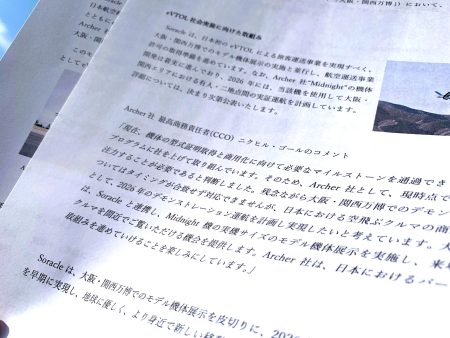 ・関西万博」）において、
大阪・関
日本航空
とともに
eVTOL 社会実装に向けた取組み
Soracle は、日本初の eVTOL による旅客運送事業を実現すべく、
大阪・関西万博でのモデル機体展示の実施と並行し、航空運送事業
許可の取得準備を進めています。なお、Archer 社“Midnight”の機体
開発は着実に進んでおり、2026 年には、当該機を使用して大阪・
関西エリアにおける有人・二地点間の実証運航を計画しています。
詳細については、決まり次第公表いたします。
Archer 社 最高商務責任者(CCO) ニクヒル・ゴールのコメント
「現在、機体の型式証明取得と商用化に向けて必要なマイルストーンを通過でき
プログラムに社を上げて取り組んでいます。そのため、Archer 社として、現時点で
注力することが必要であると判断しました。残念ながら大阪・関西万博でのデモン
ついてはタイミングが合致せず対応できませんが、日本における空飛ぶクルマの商
として、2026 年のデモンストレーション運航を計画し実現したいと考えています。大
は、Soracle と連携し、Midnight 機の実機サイズのモデル機体展示を実施し、来場
クルマを間近でご覧いただける機会を提供します。Archer 社は、日本におけるパー
取組みを進めていけることを楽しみにしています。」
Soracle は、大阪・関西万博でのモデル機体展示を皮切りに、202
を早期に実現し、地球に優しく、より身近で新しい移
このモ